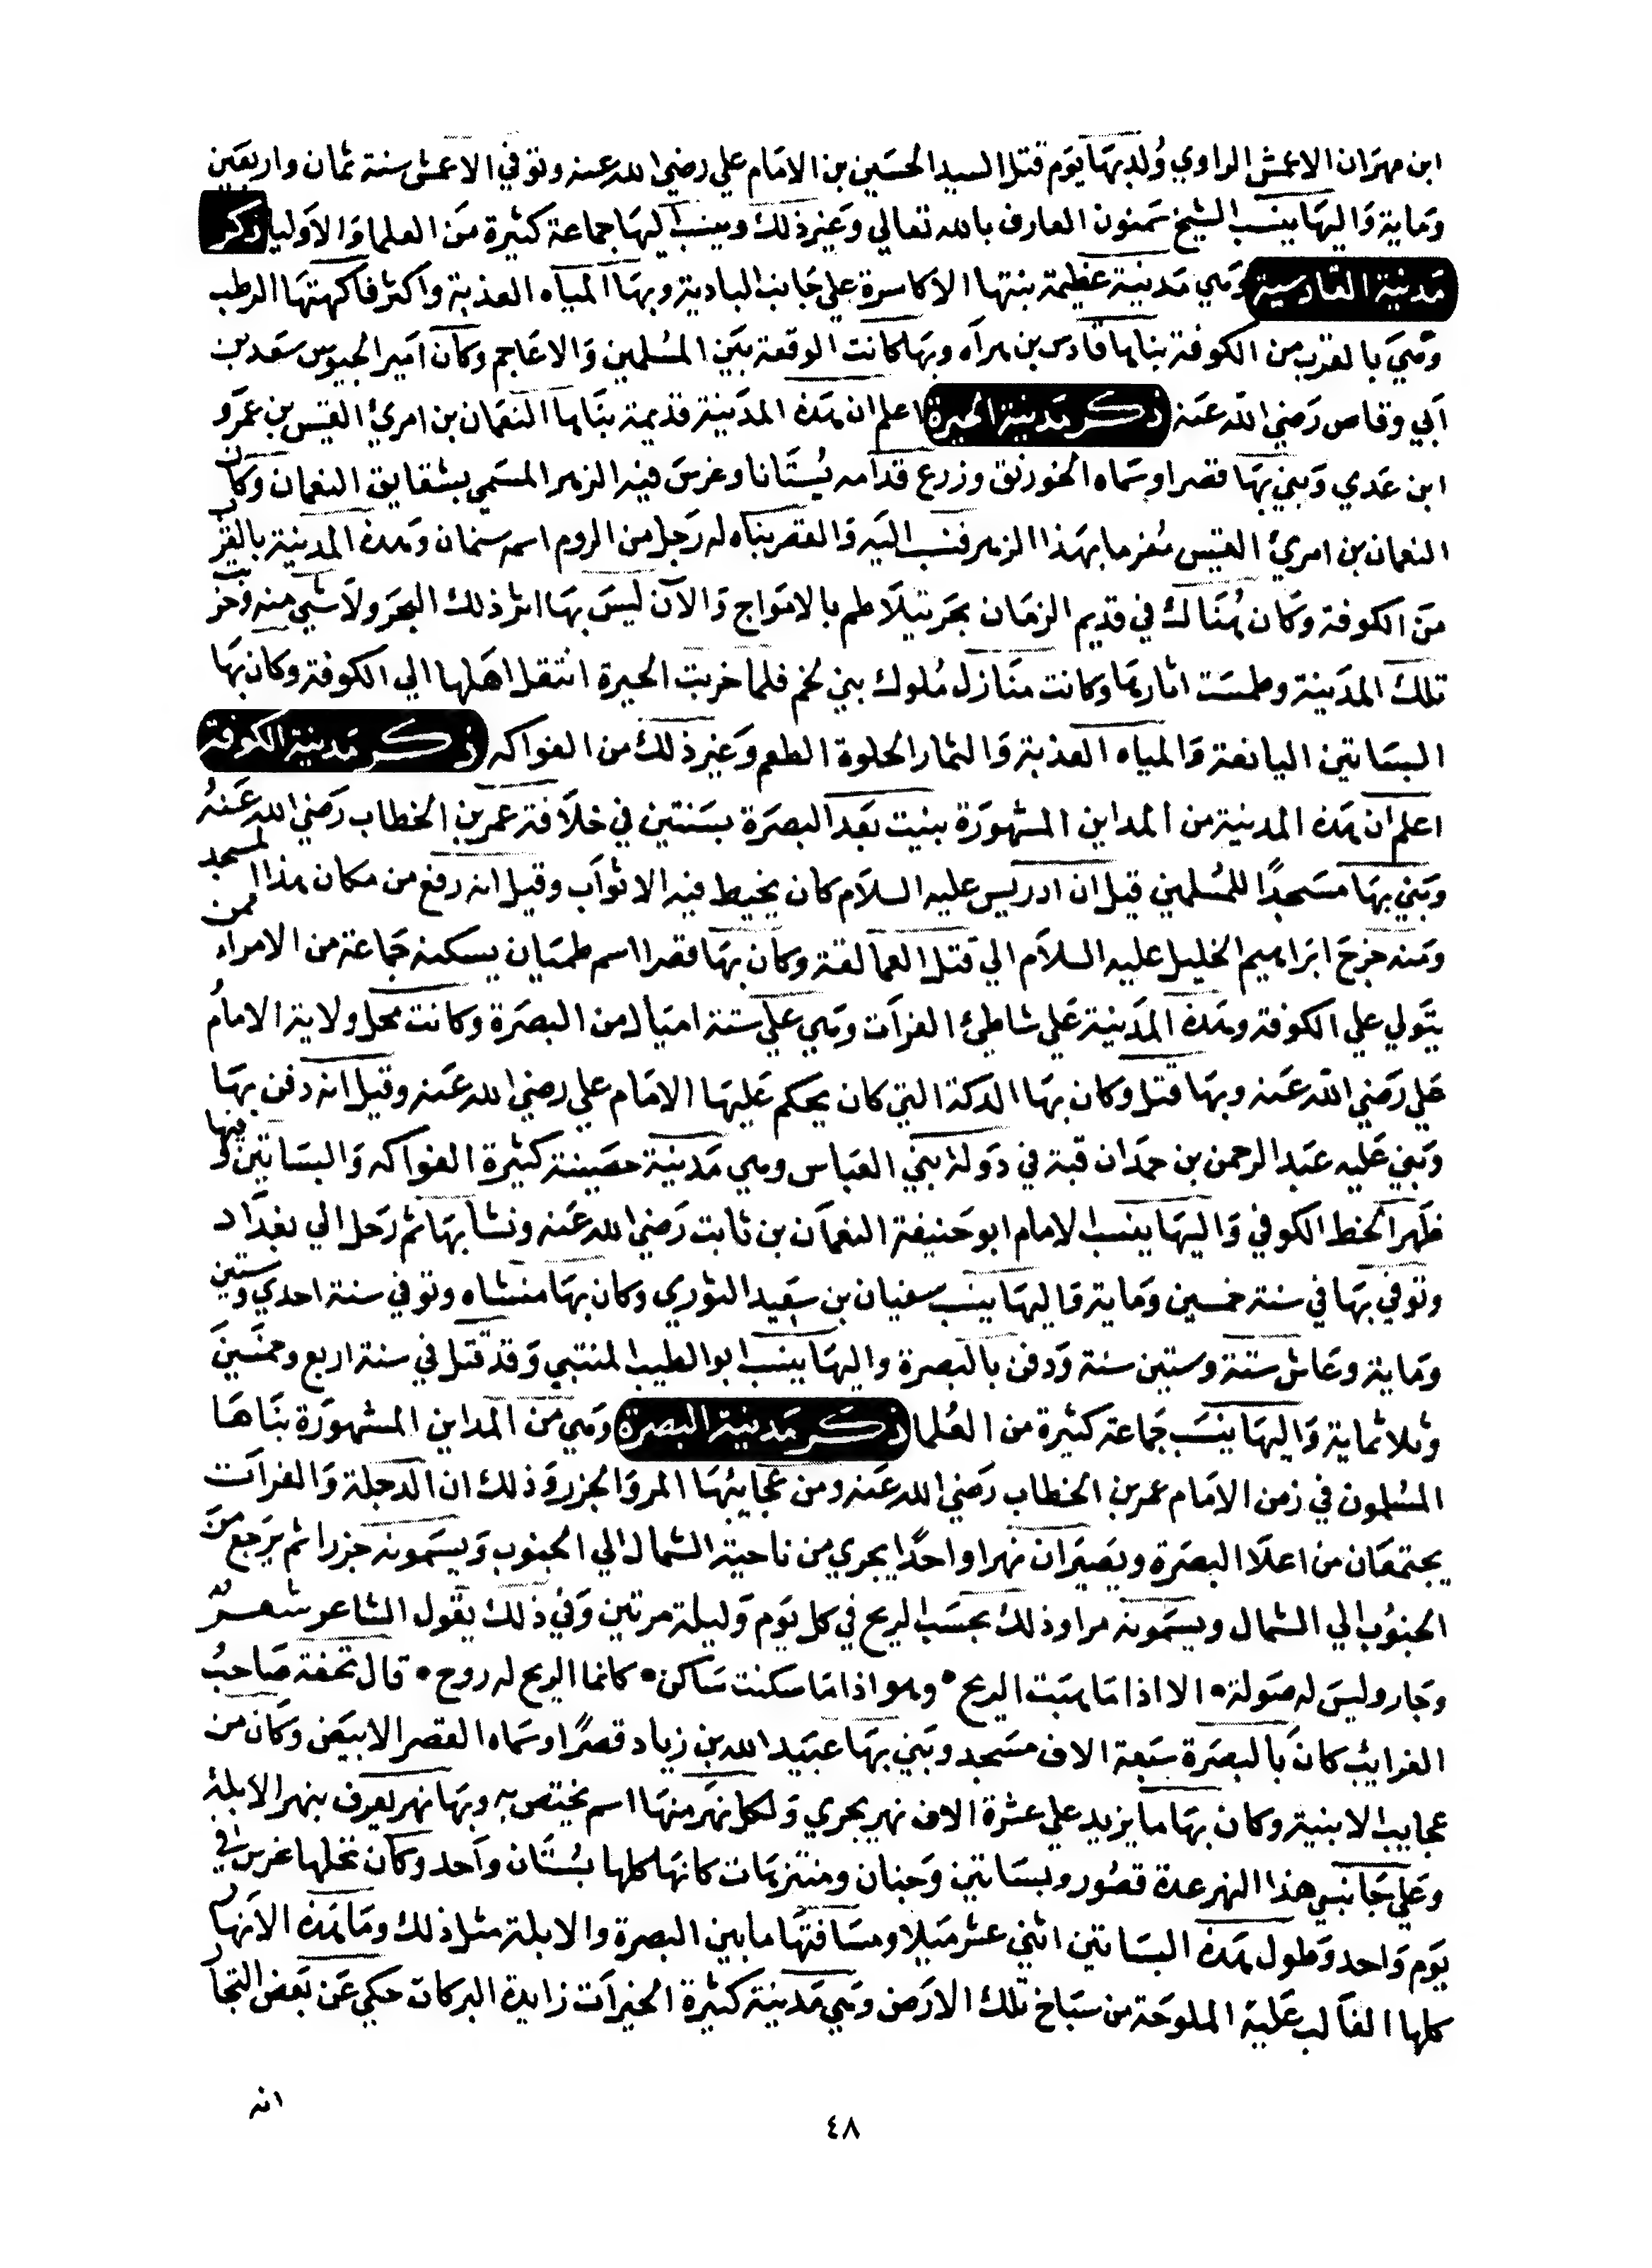 ابن مهران الاعمش الراوي ولد بها يوم قتل السيد الحسين بن الامام علي رضي الله عنه وتوفي الاعمش سنة ثمان واربعين
وماية واليها ينسب الشيخ سمنون العارف بالله تعالي وغير ذلك وينسب اليها جماعة كثيرة من العلما والاوليا ذكر
مدينة القادسية وهي مدينة عظيمة بنتها الاكاسرة علي جانب البادية وبها المياه العذبة واكثر فاكهتها الرطب
وهي بالقرب من الكوفة بناها قادس بن هراه وبها كانت الوقعة بين المسلمين والاعاجم وكان امير الجيوش سعد بن
ابي وقاص رضي الله عنه ذكر مدينة الحيرة اعلم ان هذه المدينة قديمة بناها النعمان بن امريء القيس بن عمرو
ابن عدي وبني بها قصرا وسماه الخورنق وزرع قدامه بستانا وغرس فيه الزهر المسمي بشقايق النعمان وكان
النعمان بن امريء القيس مغرما بهذا الزهر فنسب اليه والقصر بناه له رجل من الروم اسمه سنمان وهذه المدينة بالقرب
من الكوفة وكان هناك في قديم الزمان بحر يتلاطم بالامواج والآن ليس بها اثر ذلك البحر ولا شي منه وخربت
تلك المدينة وطمست اثارها وكانت منازل ملوك بني لخم فلما خربت الحيرة انتقل اهلها الي الكوفة وكان بها
البساتين اليانعة والمياه العذبة والثمار الحلوة الطعم وغير ذلك من الفواكه ذكر مدينة الكوفة
اعلم ان هذه المدينة من المداين المشهورة بنيت بعد البصرة بسنتين في خلافة عمر بن الخطاب رضي الله عنه
وبني بها مسجدا للمسلمين قيل ان ادريس عليه السلام كان يخيط فيه الاثواب وقيل انه رفع من مكان هذا المسجد
ومنه خرج ابراهيم الخليل عليه السلام الي قتل العمالقة وكان بها قصرا اسم طميان يسكنه جماعة من الامراء ممن
يتولي علي الكوفة وهذه المدينة علي شاطيء الفرات وهي علي ستة اميال من البصرة وكانت محل ولاية الامام
علي رضي الله عنه وبها قتل وكان بها الدكة التي كان يحكم عليها الامام علي رضي الله عنه وقيل انه دفن بها
وبني عليه عبد الرحمن بن حمدان قبة في دولة بني العباس وهي مدينة حصينة كثيرة الفواكه والبساتين وفيها
ظهر الخط الكوفي واليها ينسب الامام ابو حنيفة النعمان بن ثابت رضي الله عنه ونشا بها ثم رحل الي بغداد
وتوفي بها في سنة خمسين وماية واليها ينسب سفيان بن سعيد الثوري وكان بها منشاه وتوفي سنة احدي وستين
وماية وعاش ستة وستين سنة ودفن بالبصرة واليها ينسب ابو الطيب المتنبي وقد قتل في سنة اربع وخمسين
وثلاثماية واليها ينسب جماعة كثيرة من العلما ذكر مدينة البصرة وهي من المداين المشهورة بناها
المسلمون في زمن الامام عمر بن الخطاب رضي الله عنه ومن عجايبها المر والجزر وذلك ان الدجلة والفرات
يجتمعان من اعلا البصرة ويصيران نهرا واحدا يجري من ناحية الشمال الي الجنوب ويسمونه جزرا ثم يرجع من
الجنوب الي الشمال ويسمونه مرا وذلك بحسب الريح في كل يوم وليلة مرتين وفي ذلك يقول الشاعر شعر
وجار وليس له صولة • الا اذا ما هبت الريح • وهو اذا ما سكنت ساكن • كانما الريح له روح • قال تحفة صاحب
الغرايب كان بالبصرة سبعة الاف مسجد وبني بها عبيد الله بن زياد قصرا وسماه القصر الابيض وكان من
عجايب الابنية وكان بها ما يزيد علي عشرة الاف نهر يجري ولكل نهر منها اسم يختص به وبها نهر يعرف بنهر الابلة
وعلي جانبي هذا النهر عدة قصور وبساتين وجنان ومنتزهات كانها كلها بستان واحد وكان نخلها غرس في
يوم واحد وطول هذه البساتين اثني عشر ميلا ومسافتها ما بين البصرة والابلة مثل ذلك وما هذه الانهار
كلها الغالب عليه الملوحة من سباخ تلك الارض وهي مدينة كثيرة الخيرات زايدة البركات حكي عن بعض التجار
انه
٤٨